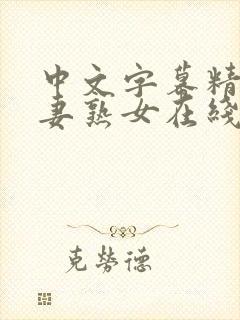 中文字幕精
妻熟女在綫
克勞德